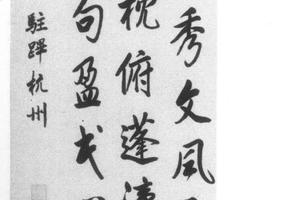 秀文風
枕俯蓬
句盈
駐蹕杭州